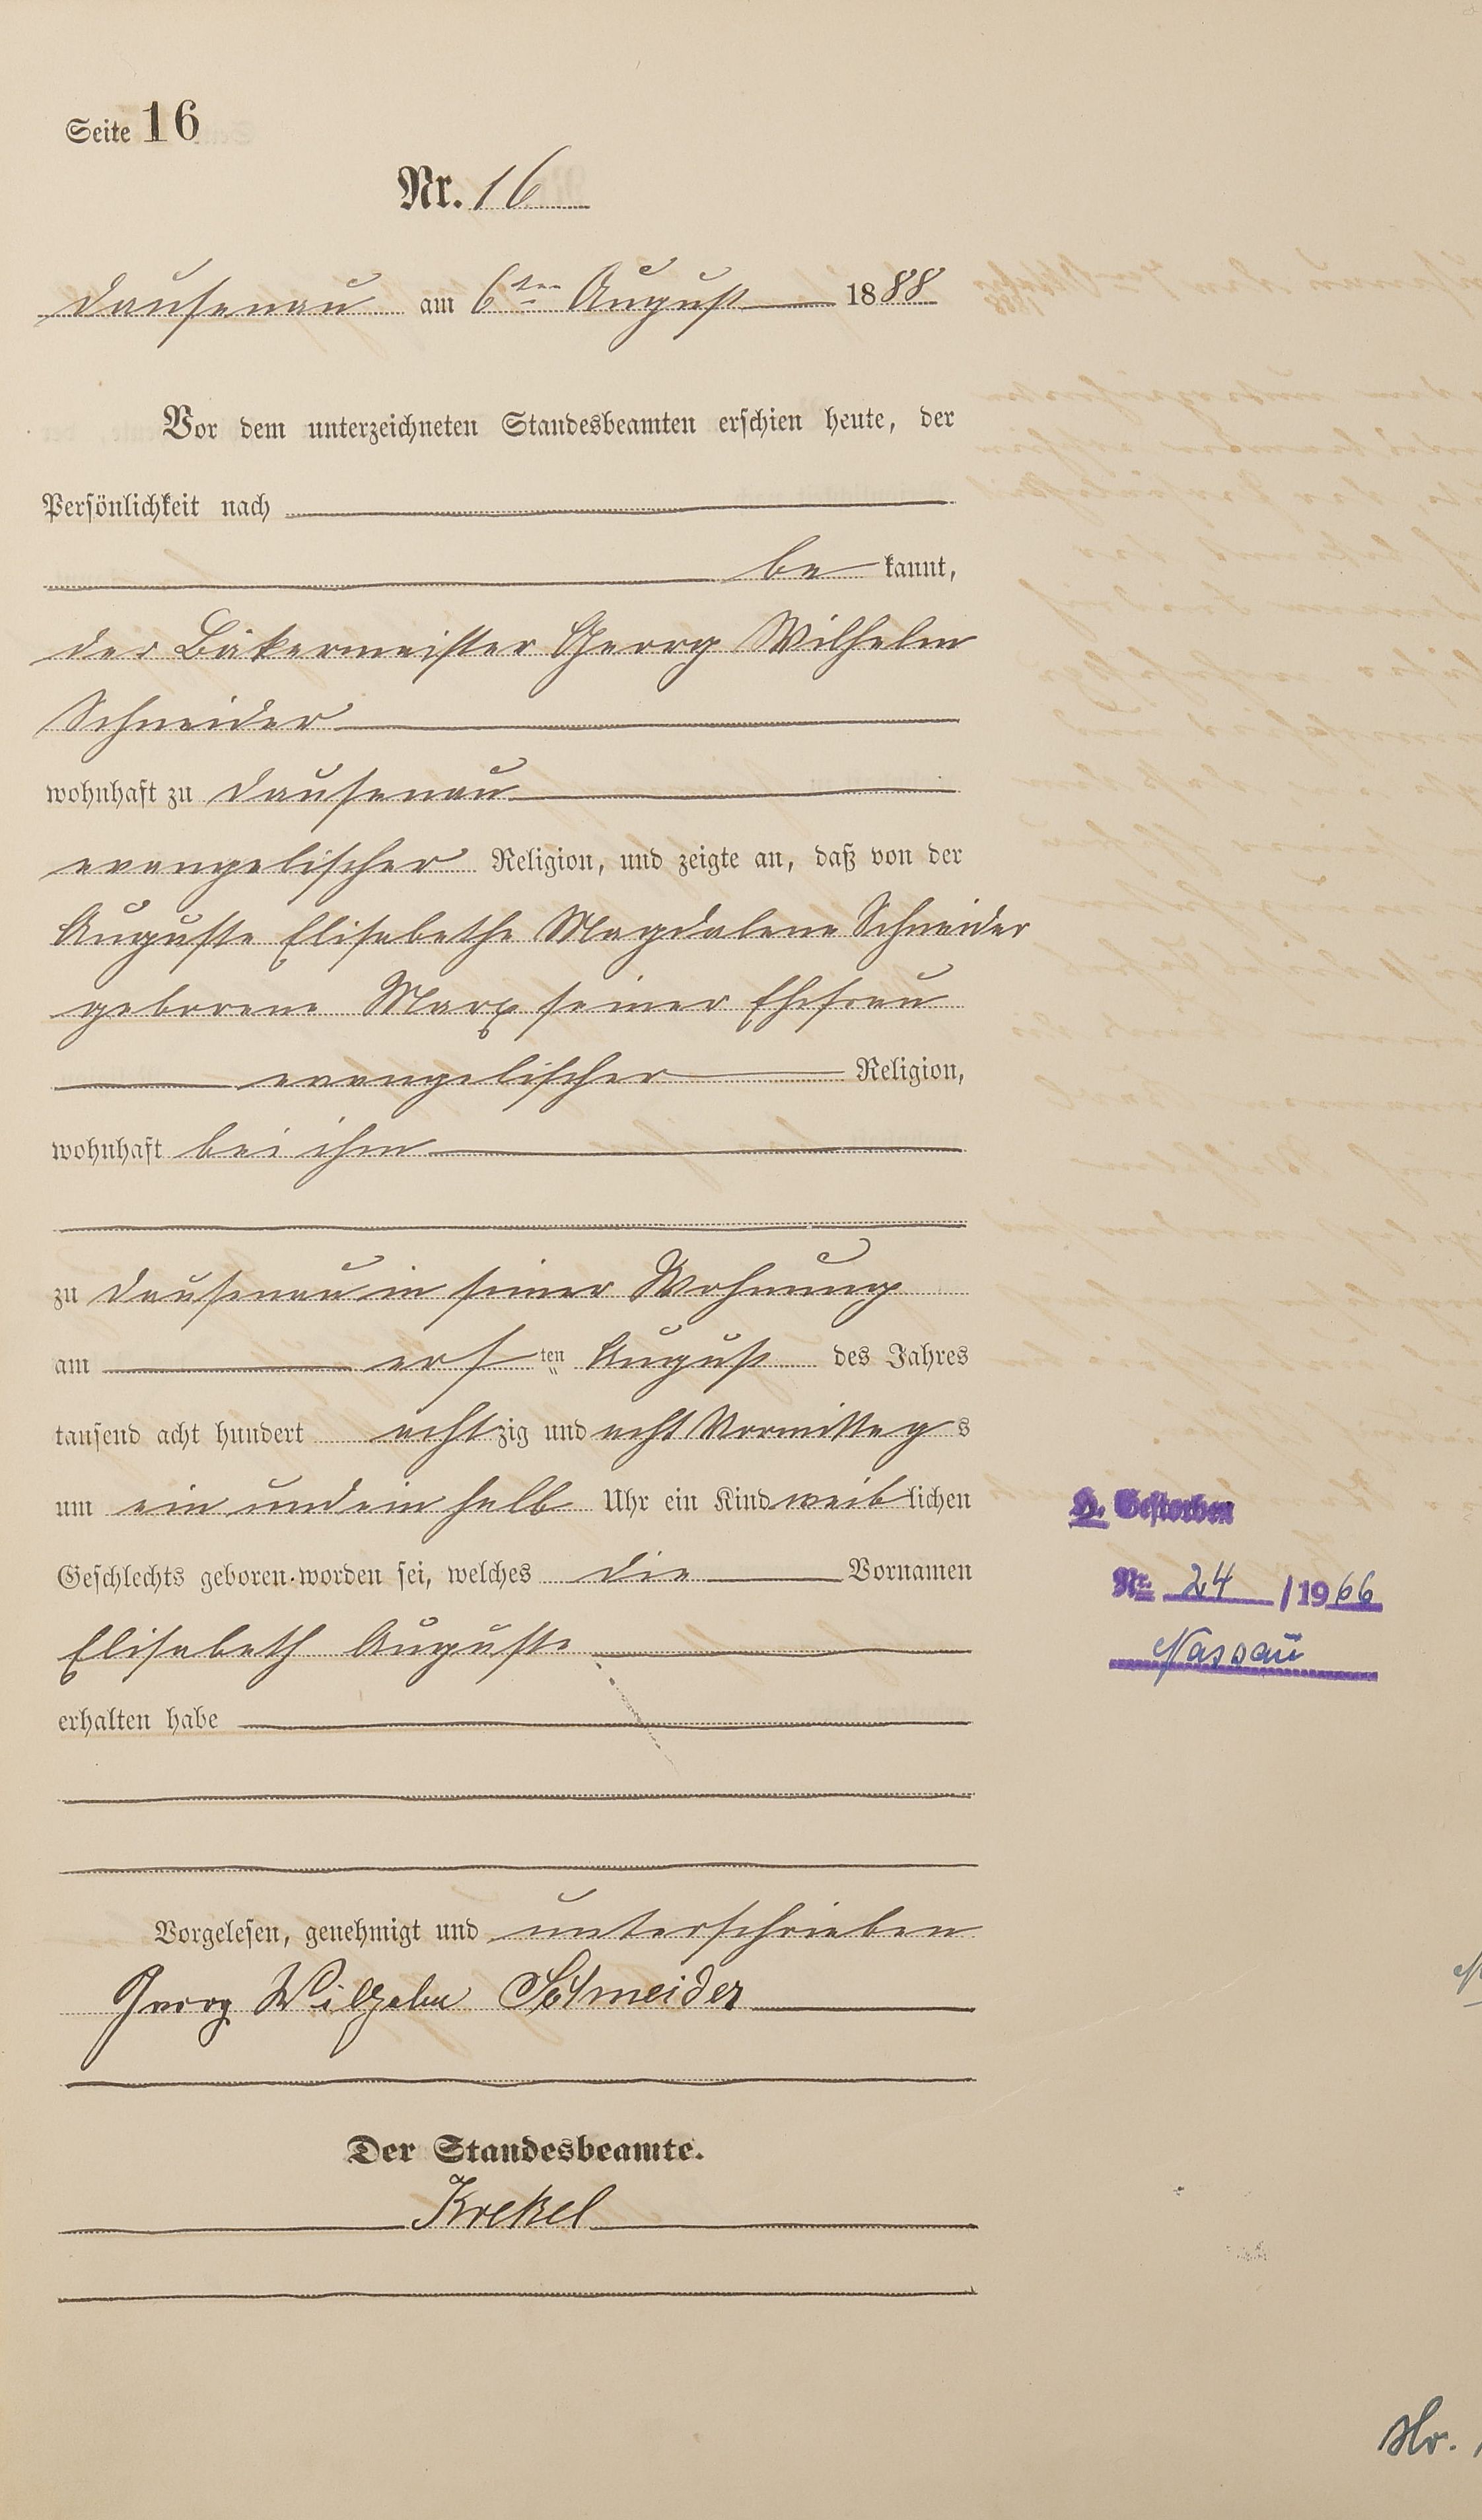 Seite 16
Nr. 16
Dausenau am 6ten August 1888
Vor dem unterzeichneten Standesbeamten erschien heute, der
Persönlichkeit nach
be kannt,
der Bäkermeister Georg Wilhelm
Schneider
wohnhaft zu Dausenau
evangelischer Religion, und zeigte an, daß von der
Auguste Elisabethe Magdalene Schneider
geborene Marx seiner Ehefrau
evangelischer Religion,
wohnhaft bei ihm
zu Dausenau in seiner Wohnung
am ersten August des Jahres
tausend acht hundert achtzig und acht Vormittags
um ein und ein halb Uhr ein Kind weiblichen
Geschlechts geboren worden sei, welches die Vornamen
Elisabeth Auguste
erhalten habe
Vorgelesen, genehmigt und unterschrieben
Georg Wilhelm Schneider
Der Standesbeamte.
Krekel
Gestorben
Nr. 24 / 1966
Nassau